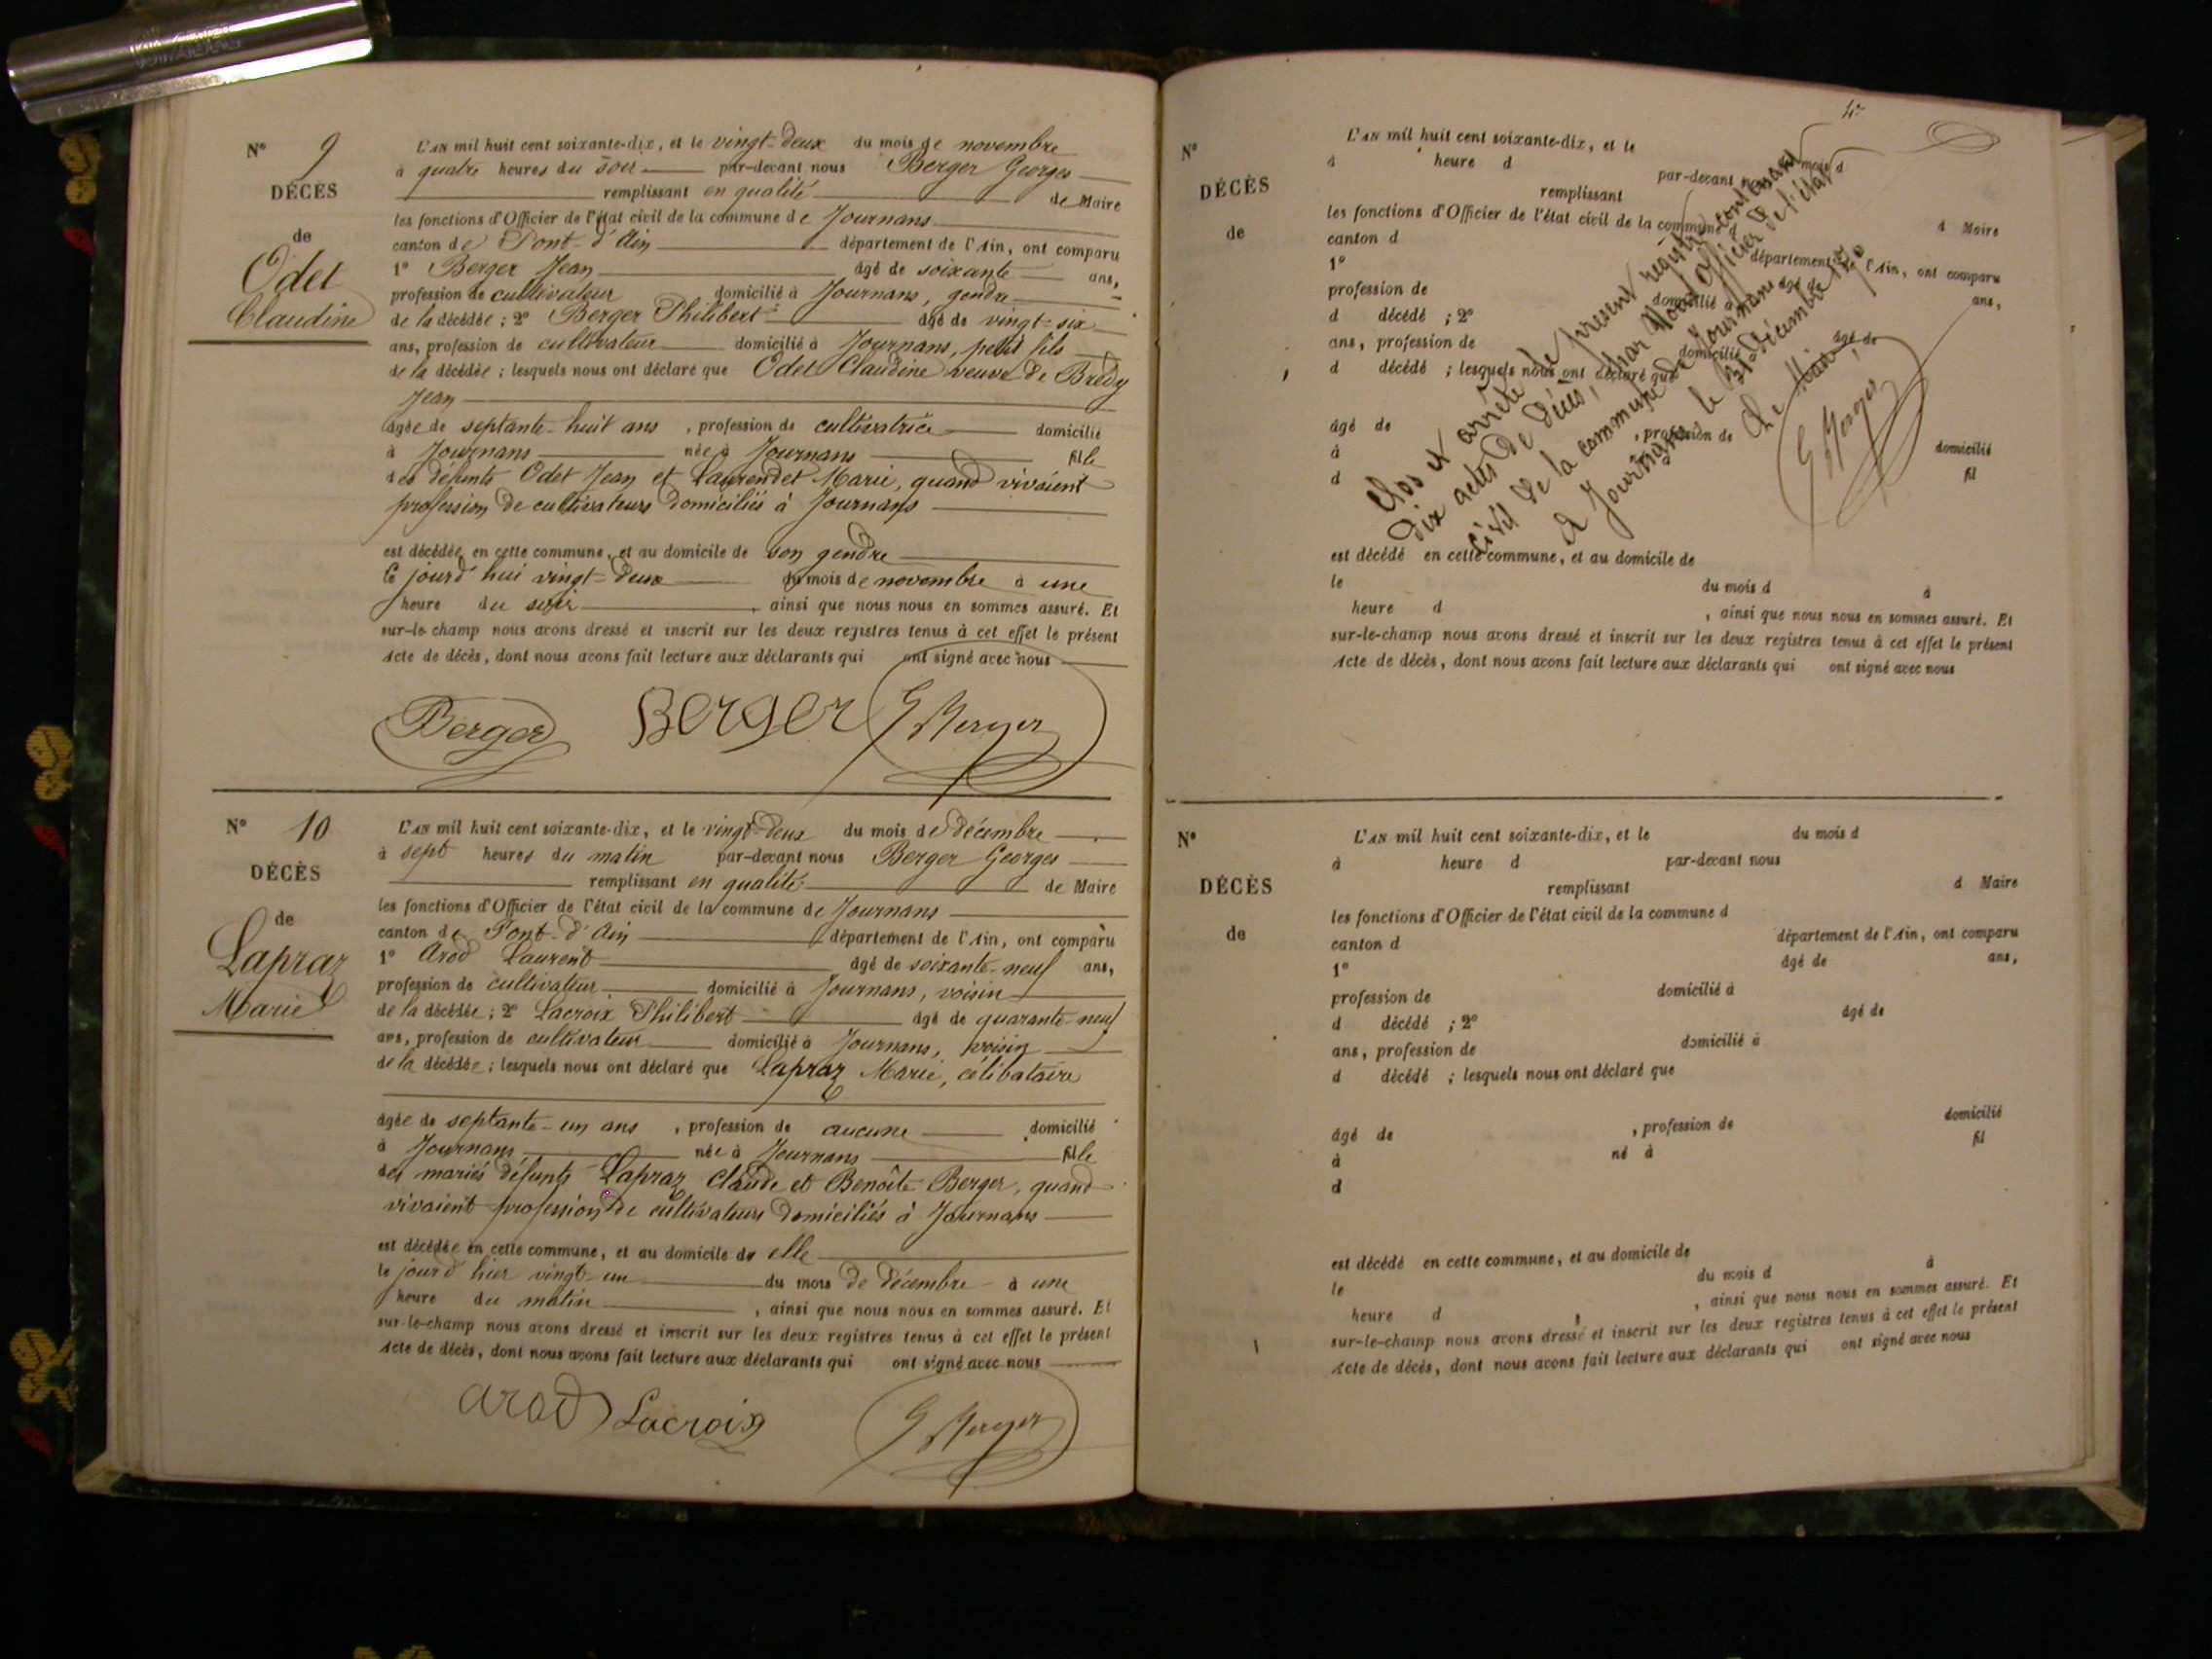 N° 9
DÉCÈS
de
Odet
Claudine
L'AN mil huit cent soixante-dix, et le vingt-deux du mois de novembre
à quatre heures du soir par-devant nous Berger Georges
remplissant en qualité de Maire
les fonctions d'Officier de l'état civil de la commune de Journans
canton de Pont-d'Ain département de l'Ain, ont comparu
1° Berger Jean âgé de soixante ans,
profession de cultivateur domicilié à Journans, gendre
de la décédée ; 2° Berger Philibert âgé de vingt-six
ans, profession de cultivateur domicilié à Journans, petit fils
de la décédée ; lesquels nous ont déclaré que Odet Claudine veuve de Bredy
Jean
âgée de septante-huit ans , profession de cultivatrice domicilié
à Journans née à Journans fille
des défunts Odet Jean et Laurendet Marie, quand vivaient
profession de cultivateurs domiciliés à Journans
est décédée en cette commune, et au domicile de son gendre
le jourd'hui vingt-deux du mois de novembre à une
heure du soir , ainsi que nous nous en sommes assuré. Et
sur-le-champ nous avons dressé et inscrit sur les deux registres tenus à cet effet le présent
Acte de décès, dont nous avons fait lecture aux déclarants qui ont signé avec nous
Berger BERGER G Berger
N° 10
DÉCÈS
de
Lapraz
Marie
L'AN mil huit cent soixante-dix, et le vingt-deux du mois de décembre
à sept heures du matin par-devant nous Berger Georges
remplissant en qualité de Maire
les fonctions d'Officier de l'état civil de la commune de Journans
canton de Pont-d'Ain département de l'Ain, ont comparu
1° Arod Laurent âgé de soixante-neuf ans,
profession de cultivateur domicilié à Journans, voisin
de la décédée ; 2° Lacroix Philibert âgé de quarante-neuf
ans, profession de cultivateur domicilié à Journans, voisin
de la décédée ; lesquels nous ont déclaré que Lapraz Marie, célibataire
âgée de septante-un ans , profession de aucune domicilié
à Journans née à Journans fille
des mariés défunts Lapraz Claude et Benoîte Berger, quand
vivaient profession de cultivateurs domiciliés à Journans
est décédée en cette commune, et au domicile de elle
le jour d'hier vingt-un du mois de décembre à une
heure du matin , ainsi que nous nous en sommes assuré. Et
sur-le-champ nous avons dressé et inscrit sur les deux registres tenus à cet effet le présent
Acte de décès, dont nous avons fait lecture aux déclarants qui ont signé avec nous
arod Lacroix G Berger
N°
DÉCÈS
de
L'AN mil huit cent soixante-dix, et le mois d
à heure d par-devant
remplissant d Maire
les fonctions d'Officier de l'état civil de la commune d
canton d département de l'Ain, ont comparu
1° âgé de ans,
profession de domicilié à
d décédé ; 2° âgé de
ans, profession de domicilié à
d décédé ; lesquels nous ont déclaré que
âgé de , profession de domicilié
à fil
d
est décédé en cette commune, et au domicile de
le du mois d à
heure d , ainsi que nous nous en sommes assuré. Et
sur-le-champ nous avons dressé et inscrit sur les deux registres tenus à cet effet le présent
Acte de décès, dont nous avons fait lecture aux déclarants qui ont signé avec nous
Clos et arrêté le présent registre contenant
dix actes de décès, par Nous officier de l'état
civil de la commune de Journans
à Journans, le 31 décembre 1870
Le Maire,
G Berger
N°
DÉCÈS
de
L'AN mil huit cent soixante-dix, et le du mois d
à heure d par-devant nous
remplissant d Maire
les fonctions d'Officier de l'état civil de la commune d
canton d département de l'Ain, ont comparu
1° âgé de ans,
profession de domicilié à
d décédé ; 2° âgé de
ans, profession de domicilié à
d décédé ; lesquels nous ont déclaré que
âgé de , profession de domicilié
à né à fil
d
est décédé en cette commune, et au domicile de
le du mois d à
heure d , ainsi que nous nous en sommes assuré. Et
sur-le-champ nous avons dressé et inscrit sur les deux registres tenus à cet effet le présent
Acte de décès, dont nous avons fait lecture aux déclarants qui ont signé avec nous